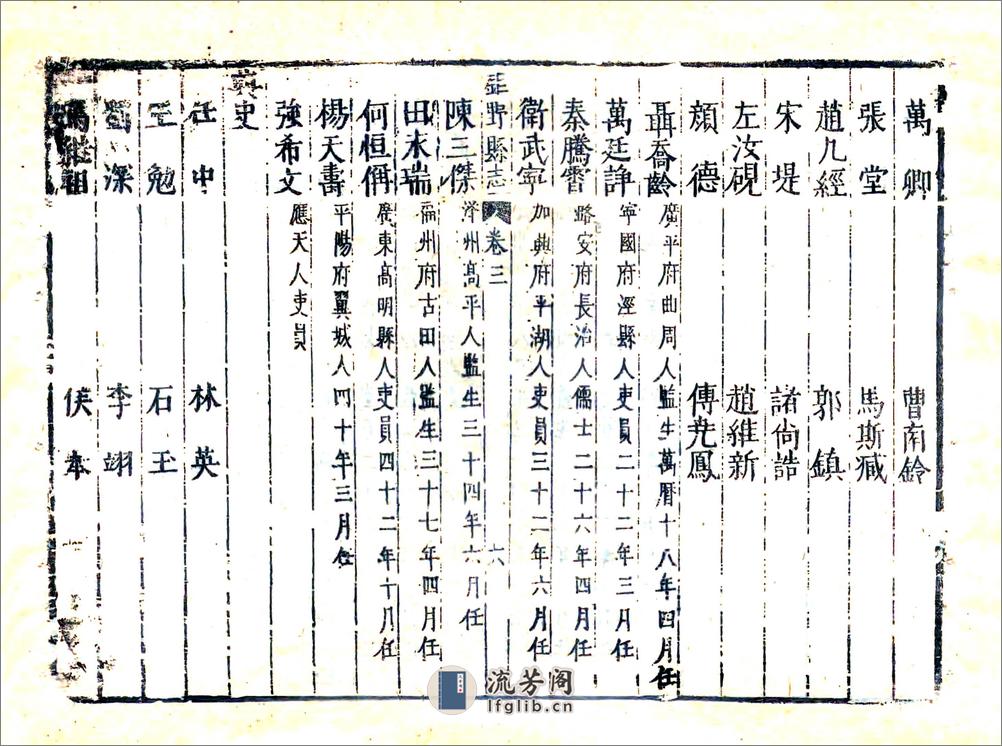 萬卿 曹南鈴
張堂 馬斯臧
趙九經 郭鎮
宋堤 諸尚誥
左汝硯 趙維新
顏德 傅堯鳳
聶喬齡 廣平府曲周人監生萬曆十八年四月任
萬廷諍 寧國府涇縣人吏員二十二年三月任
秦騰霄 路安府長治人儒士二十六年四月任
衛武寧 加興府平湖人吏員三十二年六月任
鉅野縣志 卷三 六
陳三傑 澤州高平人監生三十四年六月任
田永瑞 福州府古田人監生三十七年四月任
何恒儁 廣東高明縣人吏員四十二年十月任
楊天壽 平陽府翼城人四十年三月任
強希文 應天人吏員
典史
任中 林英
王勉 石玉
深 李翊
馮繼祖 侯本
流芳阁
lfglib.cn